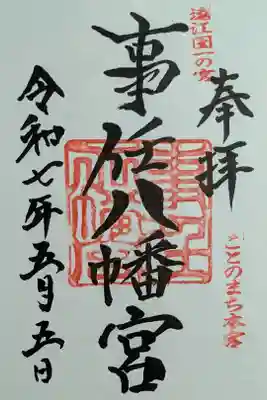 遠江国一の宮
奉拝
事任八幡宮
ことのまち本宮
令和七年五月五日